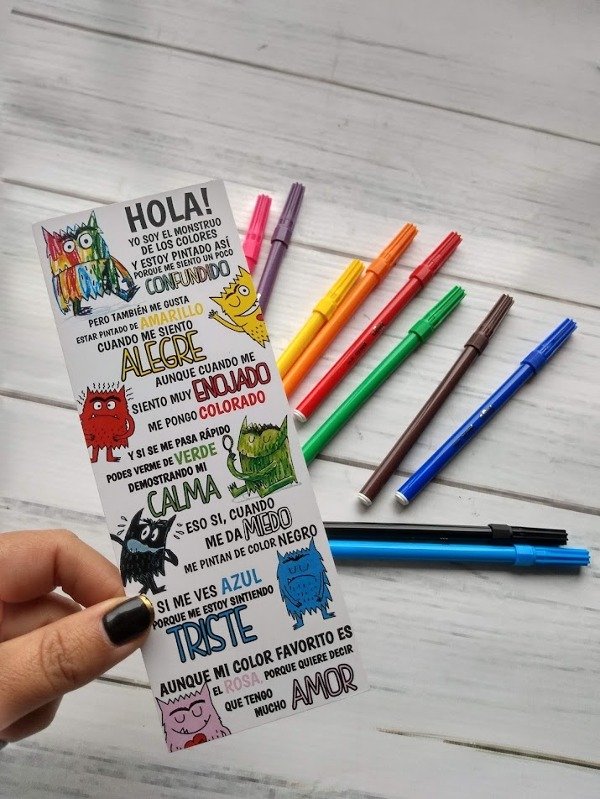 HOLA!
YO SOY EL MONSTRUO
DE LOS COLORES
Y ESTOY PINTADO ASÍ
PORQUE ME SIENTO UN POCO
CONFUNDIDO
PERO TAMBIÉN ME GUSTA
ESTAR PINTADO DE AMARILLO
CUANDO ME SIENTO
ALEGRE
AUNQUE CUANDO ME
SIENTO MUY ENOJADO
ME PONGO COLORADO
Y SI SE ME PASA RÁPIDO
PODES VERME DE VERDE
DEMOSTRANDO MI
CALMA
ESO SI, CUANDO
ME DA MIEDO
ME PINTAN DE COLOR NEGRO
SI ME VES AZUL
PORQUE ME ESTOY SINTIENDO
TRISTE
AUNQUE MI COLOR FAVORITO ES
EL ROSA, PORQUE QUIERE DECIR
QUE TENGO
MUCHO AMOR